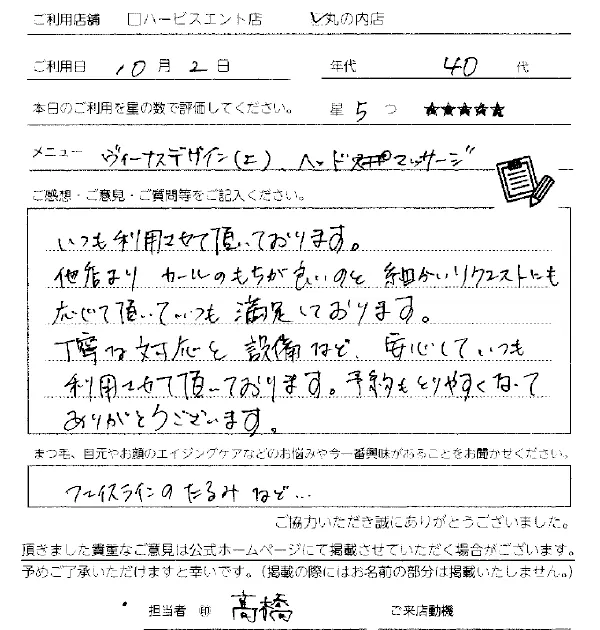 ご利用店舗 □ハービスエント店 ☑丸の内店
ご利用日 10月2日 年代 40代
本日のご利用を星の数で評価してください。 星5つ ★★★★★
メニュー ヴィーナスデザイン(上)、ヘッド マッサージ
ご感想・ご意見・ご質問等をご記入ください。
いつも利用させて頂いております。
他店より カールのもちが良いのと 細かいリクエストにも
応じて頂いていつも 満足しております。
丁寧な対応と 設備など、安心していつも
利用させて頂いております。予約もとりやすくなって
ありがとうございます。
まつ毛、目元やお顔のエイジングケアなどのお悩みや今一番興味があることをお聞かせください。
フェイスラインのたるみなど…
ご協力いただき誠にありがとうございました。
頂きました貴重なご意見は公式ホームページにて掲載させていただく場合がございます。
予めご了承いただけますと幸いです。(掲載の際にはお名前の部分は掲載いたしません。)
担当者 ㊞ 髙橋 ご来店動機